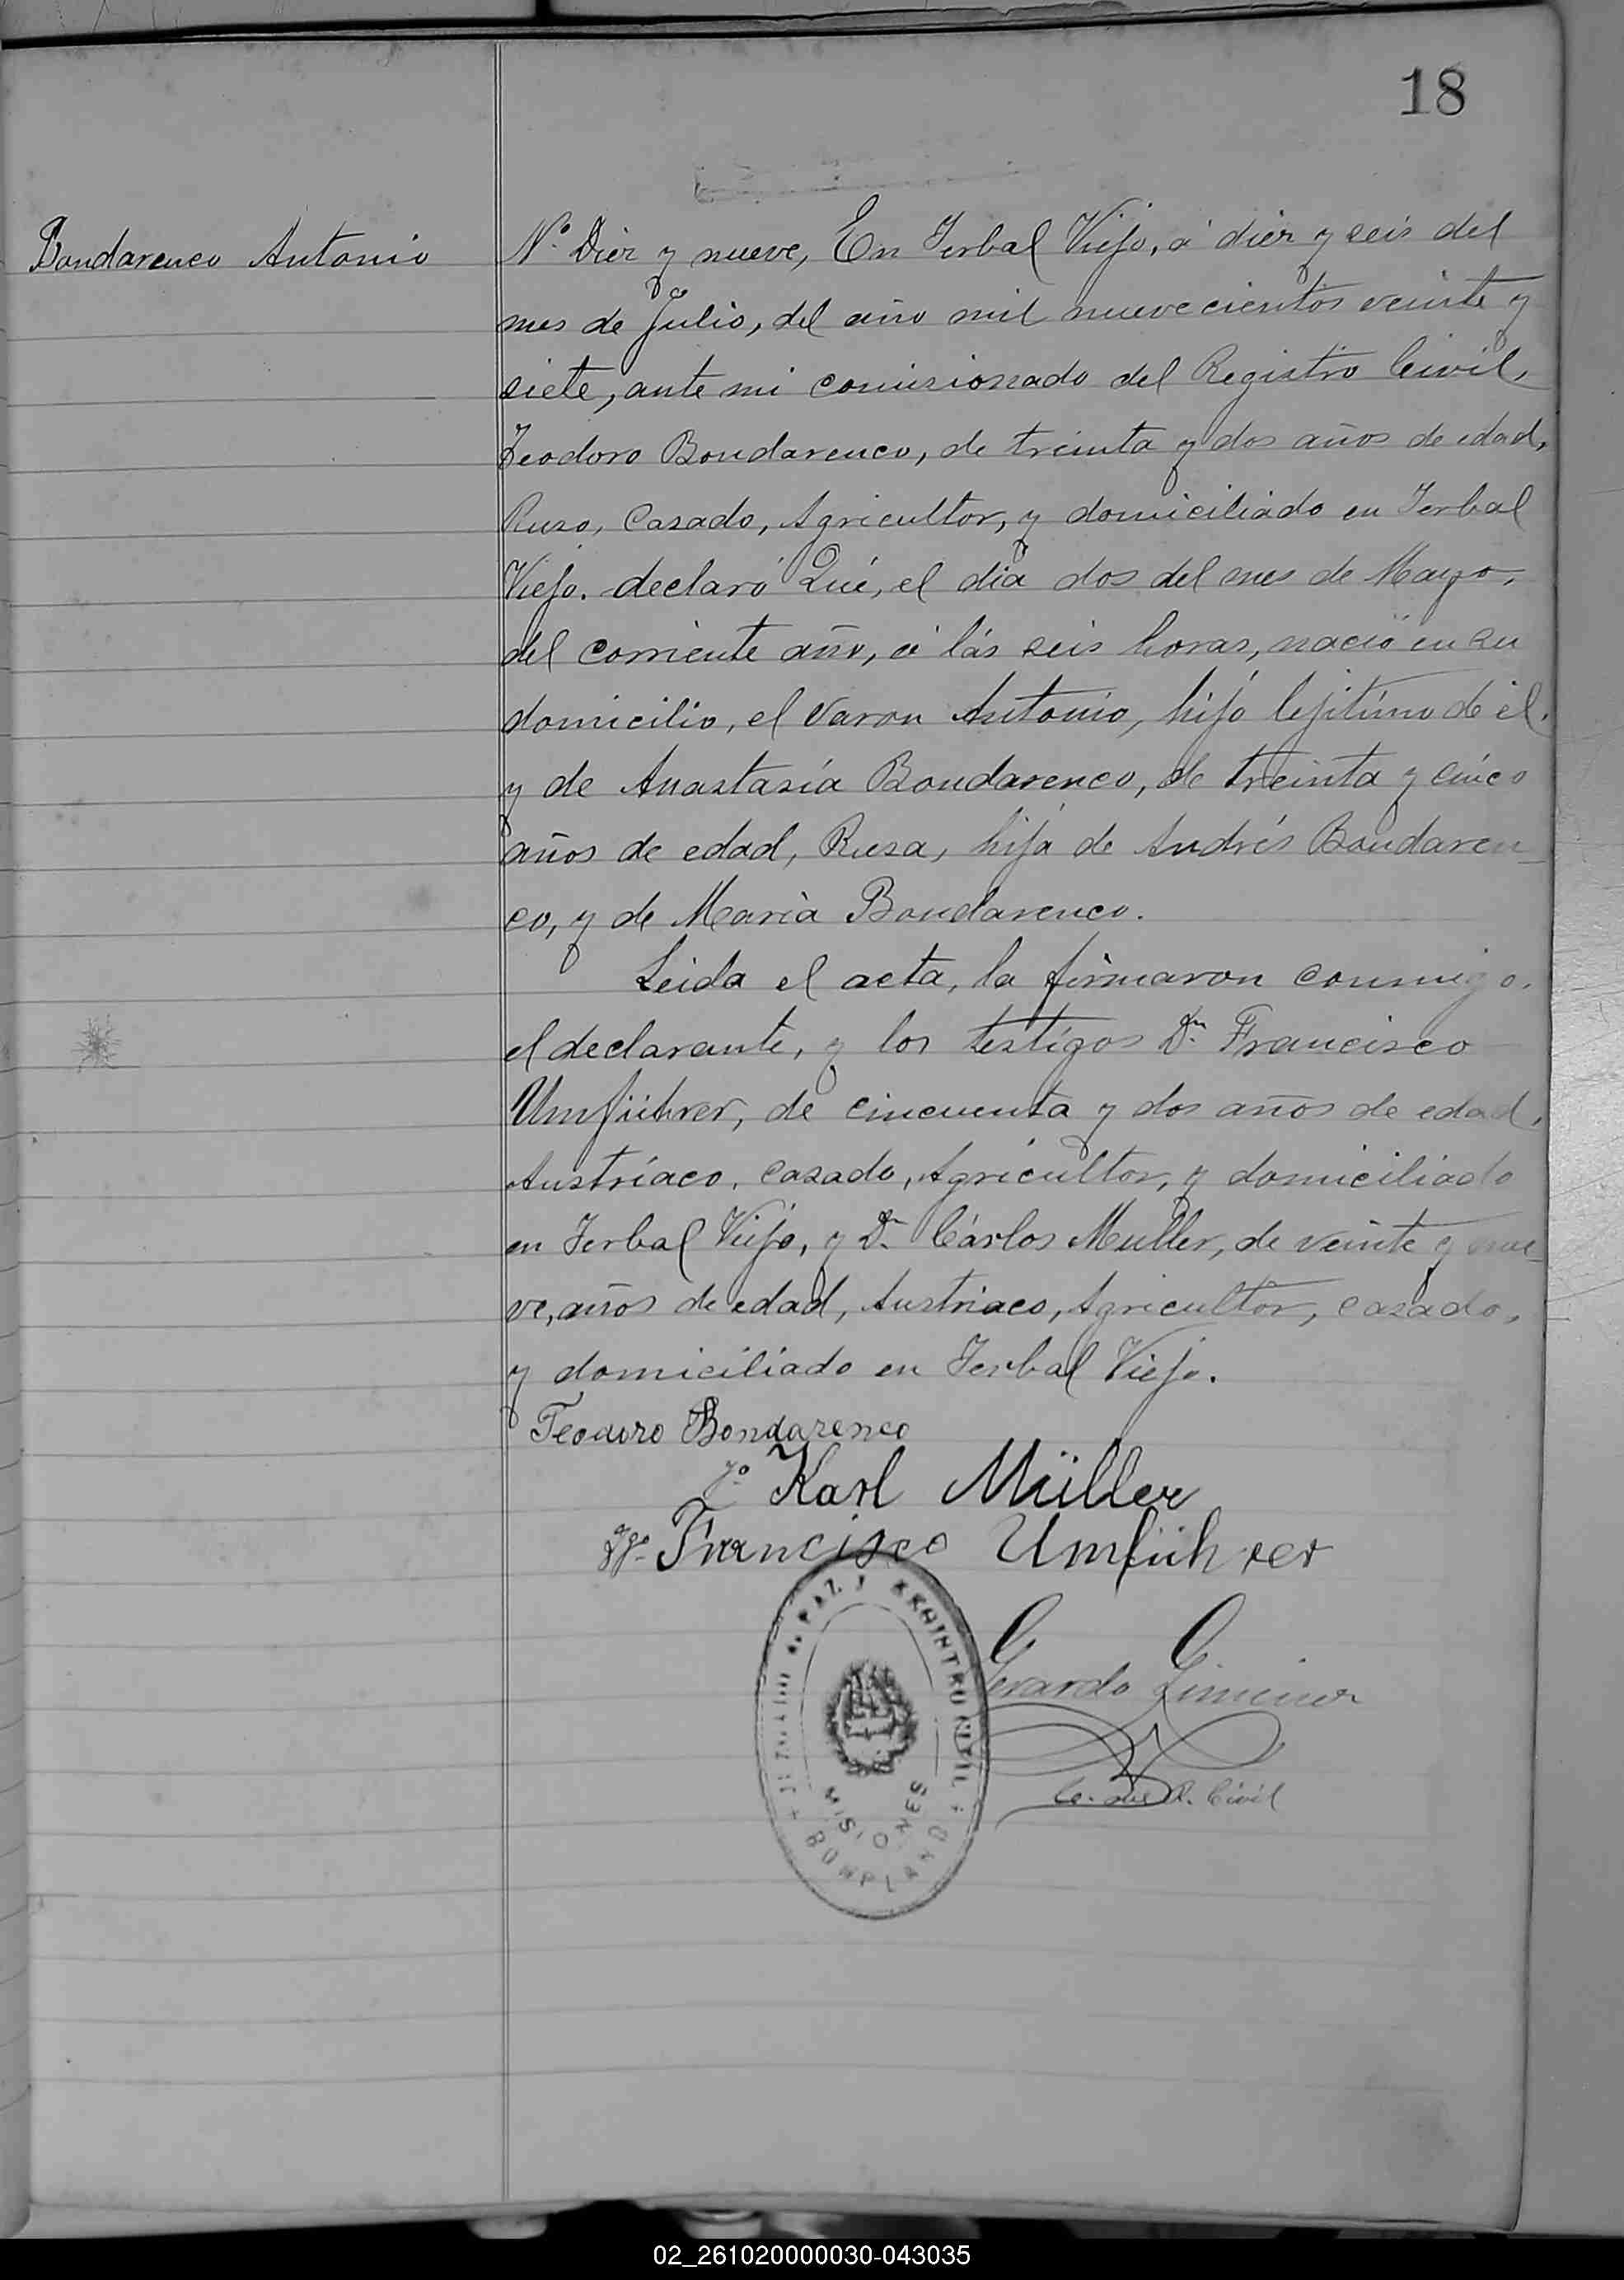 18
Bondarenco Antonio
N.º Diez y nueve, En Yerbal Viejo, á diez y seis del
mes de Julio, del año mil nuevecientos veinte y
siete, ante mi comisionado del Registro Civil,
Teodoro Bondarenco, de treinta y dos años de edad,
Ruso, Casado, Agricultor, y domiciliado en Yerbal
Viejo. declaró Qué, el dia dos del mes de Mayo,
del corriente año, á lás seis horas, nació en su
domicilio, el varon Antonio, hijo lejitimo de él.
y de Anastasía Bondarenco, de treinta y cinco
años de edad, Rusa, hija de Andrés Bondaren-
co, y de María Bondarenco.
Leida el acta, la firmaron conmigo,
el declarante, y los testigos Dn. Francisco
Umführer, de cincuenta y dos años de edad,
Austríaco, casado, Agricultor, y domiciliado
en Yerbal Viejo, y Dn. Cárlos Muller, de veinte y nue-
ve, años de edad, Austriaco, Agricultor, casado,
y domiciliado en Yerbal Viejo.
Teodoro Bondarenco
Karl Müller
Francisco Umführer
Gerardo Gimenez
C. del R. Civil
MISIONES
BONPLAND
02_261020000030-043035